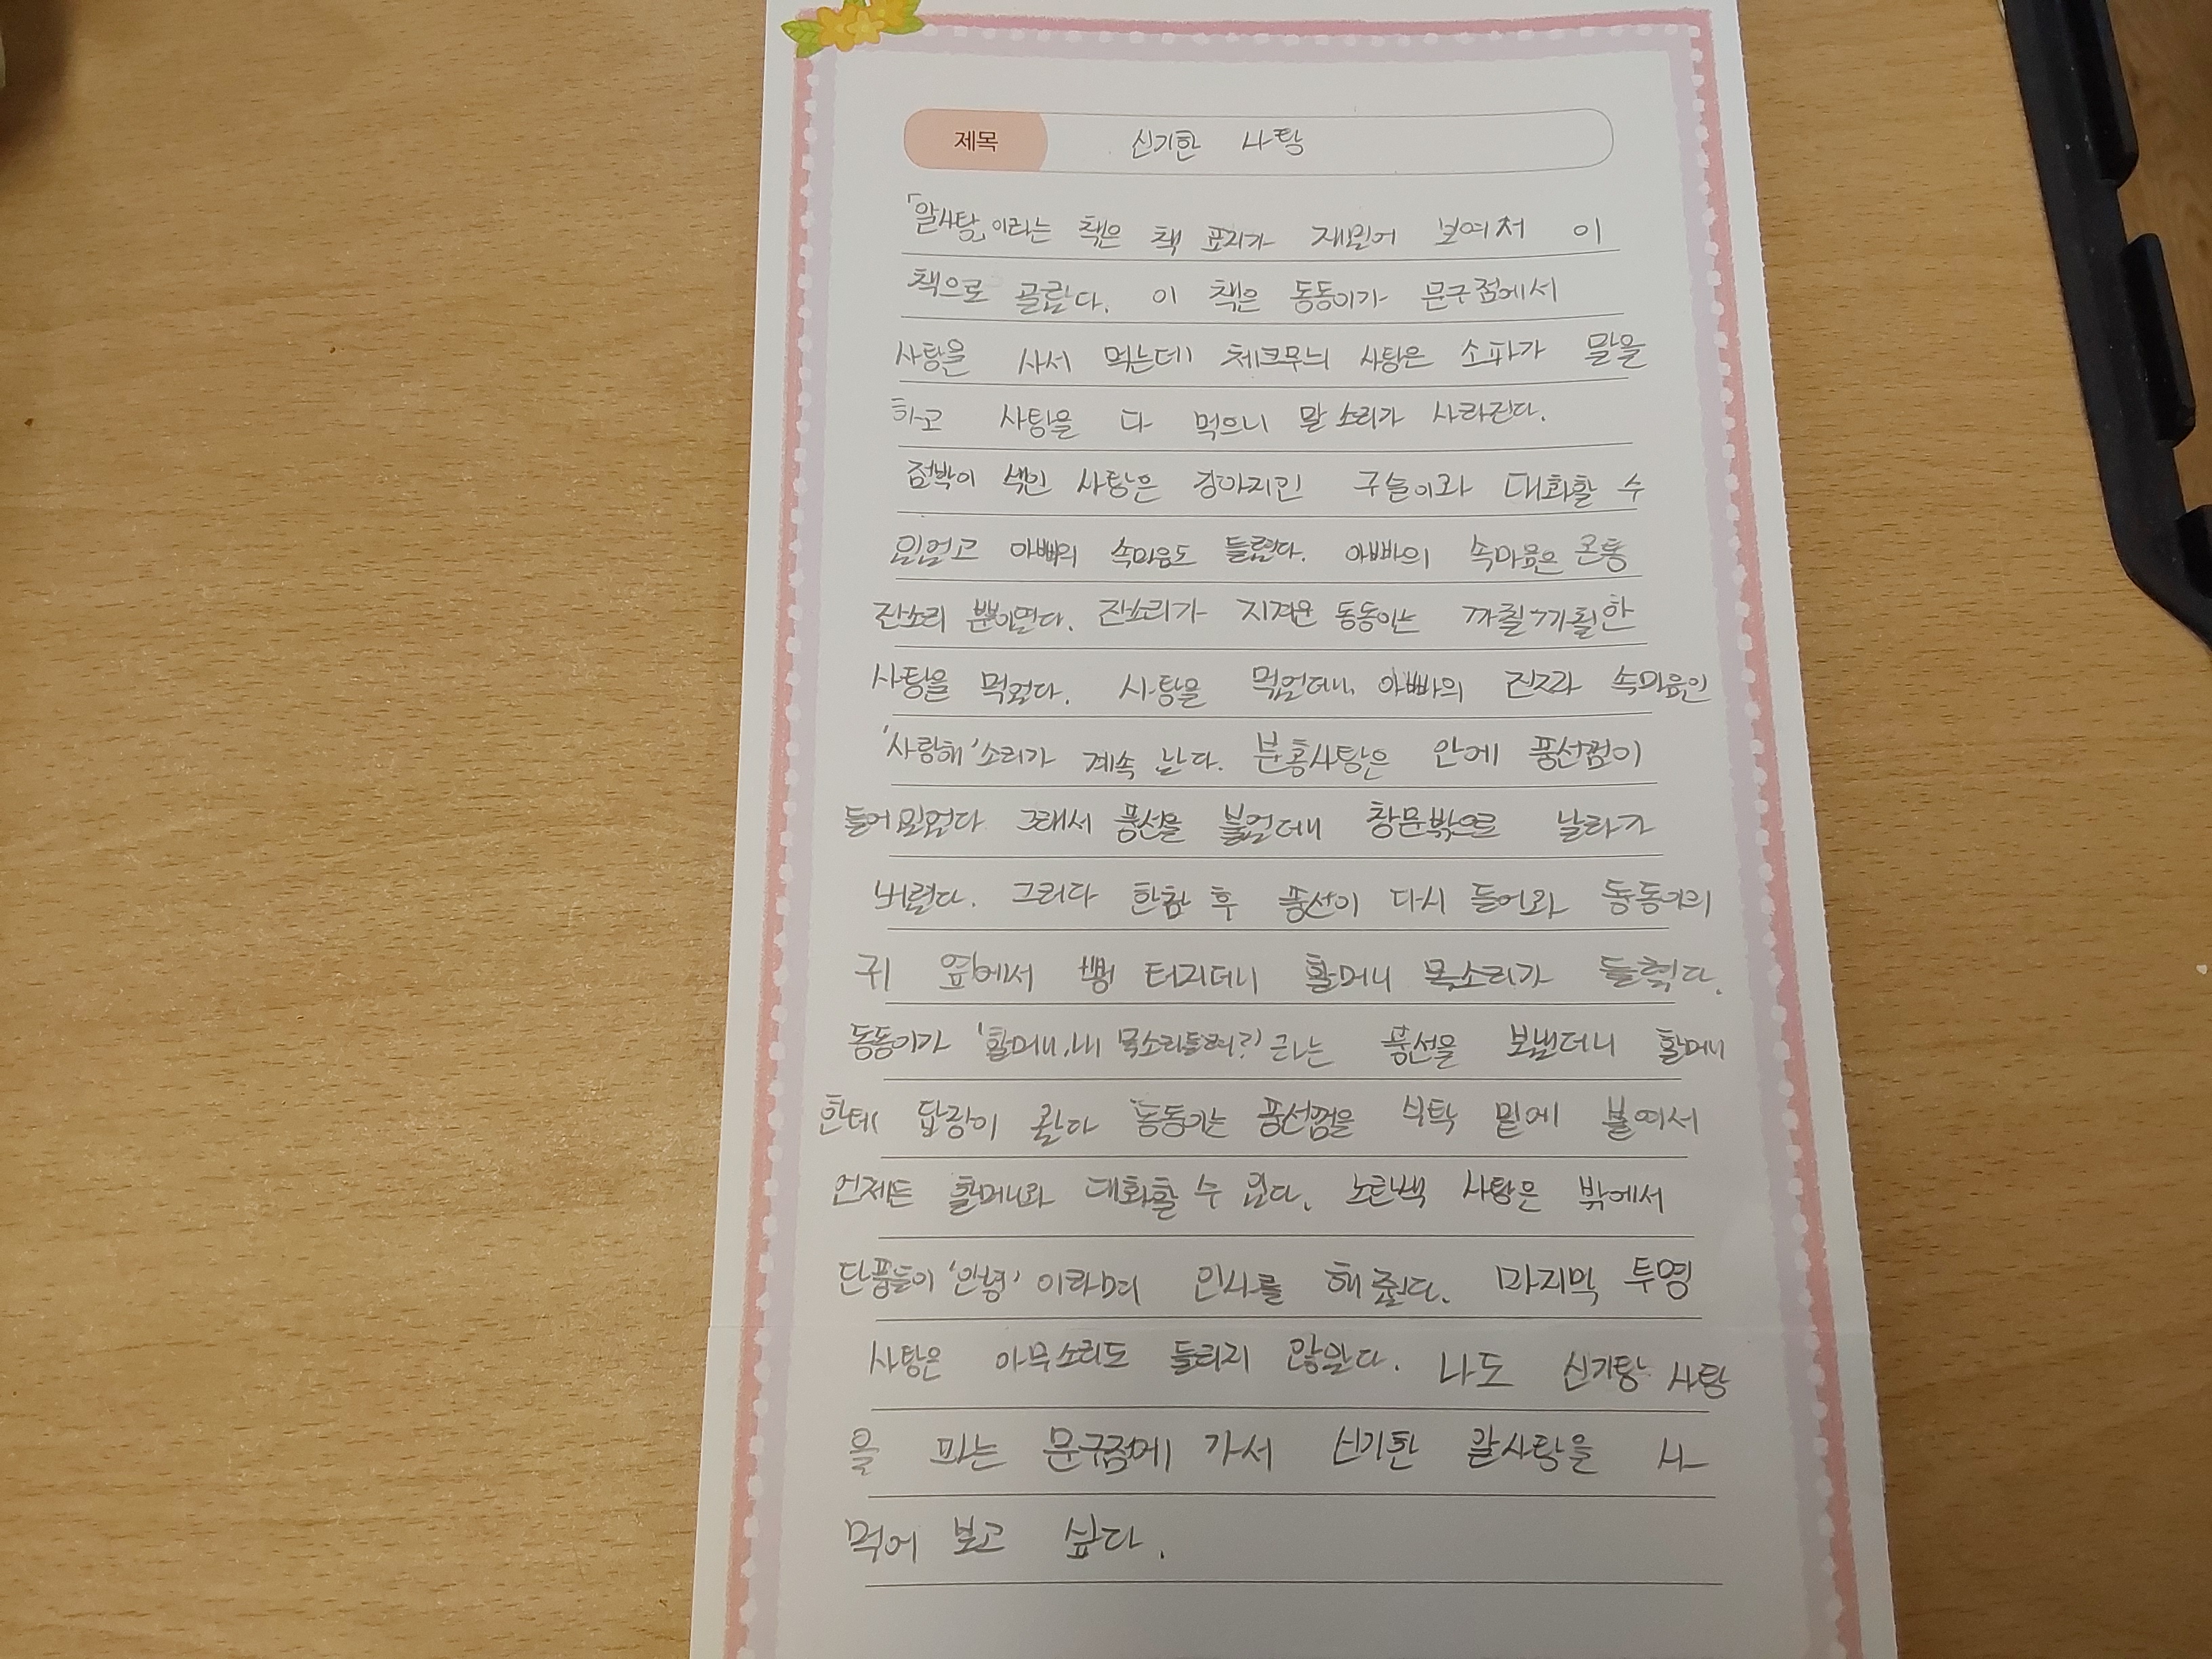 제목 신기한 사탕
「알사탕」이라는 책은 책 표지가 재밌어 보여서 이
책으로 골랐다. 이 책은 동동이가 문구점에서
사탕을 사서 먹는데 체크무늬 사탕은 소파가 말을
하고 사탕을 다 먹으니 말소리가 사라진다.
점박이 색인 사탕은 강아지인 구슬이와 대화할 수
있었고 아빠의 속마음도 들렸다. 아빠의 속마음은 온통
잔소리 뿐이였다. 잔소리가 지겨운 동동이는 까칠까칠한
사탕을 먹었다. 사탕을 먹었더니 아빠의 진짜 속마음인
'사랑해' 소리가 계속 난다. 분홍사탕은 안에 풍선껌이
들어있었다 그래서 풍선을 불었더니 창문밖으로 날라가
버렸다. 그러다 한참 후 풍선이 다시 들어와 동동이의
귀 옆에서 뻥 터지더니 할머니 목소리가 들렸다.
동동이가 '할머니, 내 목소리들려?' 라는 풍선을 보냈더니 할머니
한테 답장이 왔다 동동이는 풍선껌을 식탁 밑에 붙여서
언제든 할머니와 대화할 수 있다. 노란색 사탕은 밖에서
단풍들이 '안녕' 이라며 인사를 해 줬다. 마지막 투명
사탕은 아무소리도 들리지 않았다. 나도 신기한 사탕
을 파는 문구점에 가서 신기한 알사탕을 사
먹어 보고 싶다.